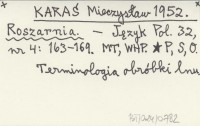 KARAŚ Mieczysław 1952.
Roszarnia. — Język Pol. 32,
nr 4: 163–169. MT, WHP. ★ P, S, O.
Terminologia obróbki lnu